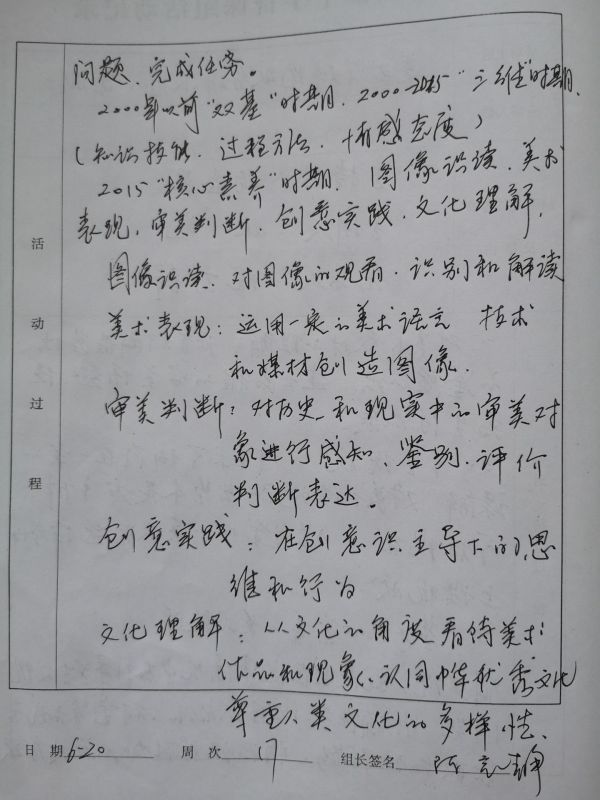 问题、完成任务。
2000年以前"双基"时期、2000-2015"三维"时期、
(知识技能、过程方法、情感态度)
2015"核心素养"时期、图像识读、美术
表现、审美判断、创意实践、文化理解、
图像识读、对图像的观看、识别和解读
美术表现：运用一定的美术语言 技术
和媒材创造图像.
审美判断：对历史和现实中的审美对
象进行感知、鉴别、评价
判断表达。
创意实践：在创意识主导下的思
维和行为
文化理解：从文化的角度看待美术
作品和现象、认同中华优秀文化
尊重人类文化的多样性、
活动过程
日 期 6-20 周 次 17 组长签名 陈